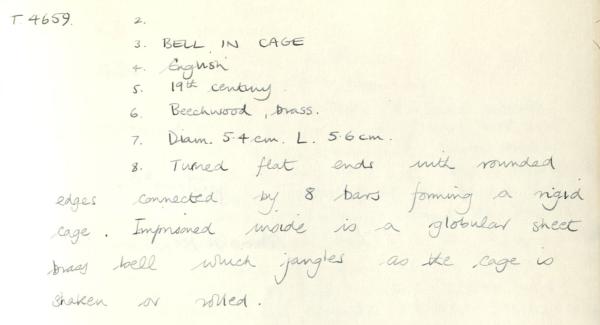 T. 4659. 2.
3. BELL IN CAGE
4. English
5. 19th century.
6. Beechwood, brass.
7. Diam. 5.4 cm. L. 5.6 cm.
8. Turned flat ends with rounded
edges connected by 8 bars forming a rigid
cage. Imprisoned inside is a globular sheet
brass bell which jangles as the cage is
shaken or rolled.